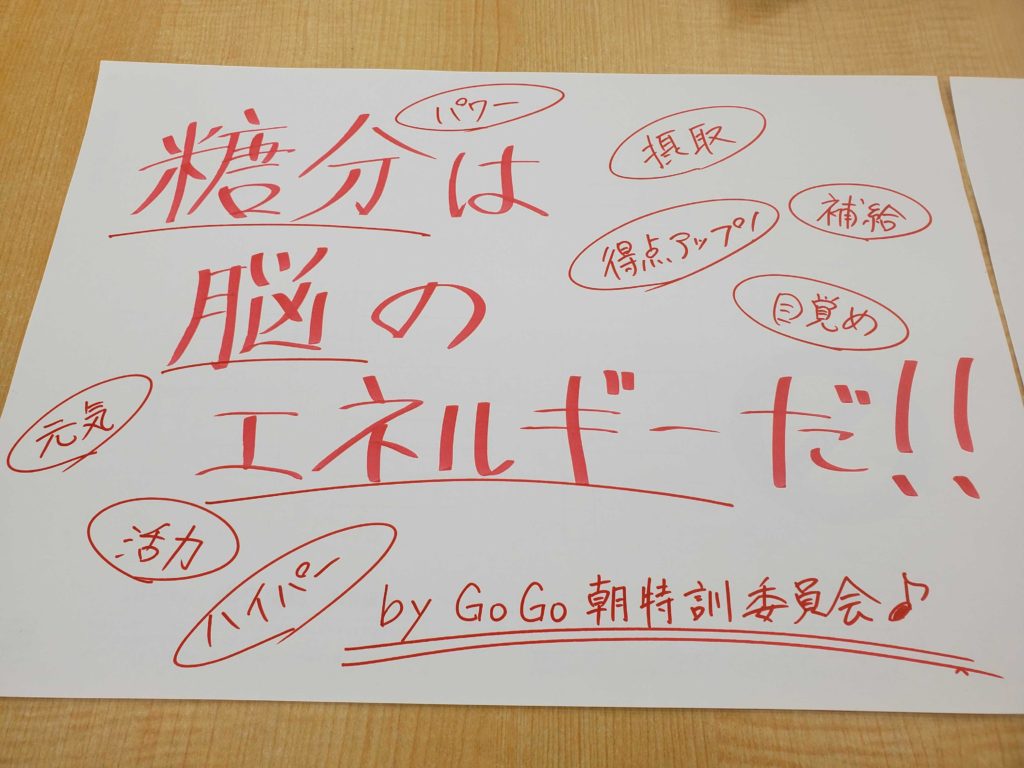 パワー
糖分は
摂取
補給
得点アップ!
脳の
目覚め
エネルギーだ!!
元気
活力
ハイパー
by GoGo朝特訓委員会♪